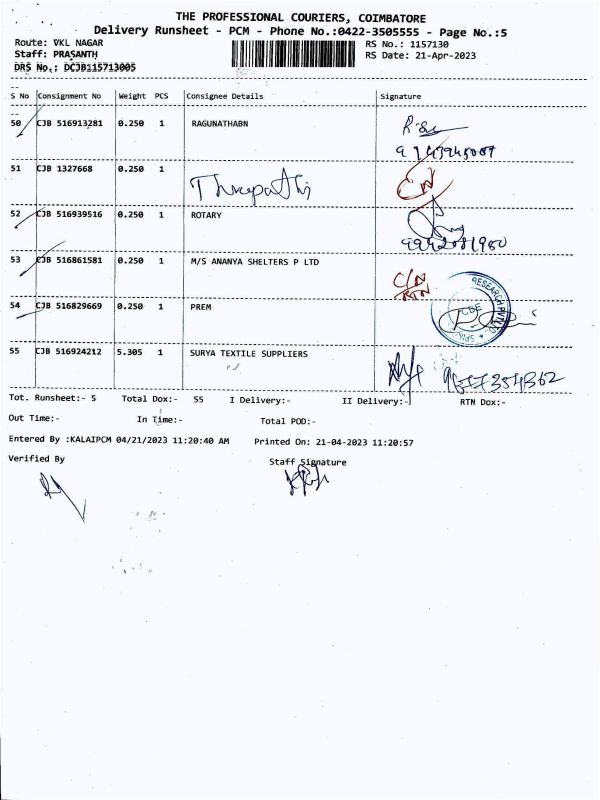 THE PROFESSIONAL COURIERS, COIMBATORE
Delivery Runsheet - PCM - Phone No.:0422-3505555 - Page No.:5
Route: VKL NAGAR
RS No.: 1157130
Staff: PRASANTH
RS Date: 21-Apr-2023
DRS No.: DCJB115713005
S No Consignment No Weight PCS Consignee Details Signature
50 CJB 516913281 0.250 1 RAGUNATHBN
51 CJB 1327668 0.250 1
52 CJB 516939516 0.250 1 ROTARY
53 CJB 516861581 0.250 1 M/S ANANYA SHELTERS P LTD
C/N
RTN
54 CJB 516829669 0.250 1 PREM
RESEARCH
CBE
55 CJB 516924212 5.305 1 SURYA TEXTILE SUPPLIERS
Tot. Runsheet:- 5 Total Dox:- 55 I Delivery:- II Delivery:- RTN Dox:-
Out Time:- In Time:- Total POD:-
Entered By :KALAIPCM 04/21/2023 11:20:40 AM Printed On: 21-04-2023 11:20:57
Verified By Staff Signature